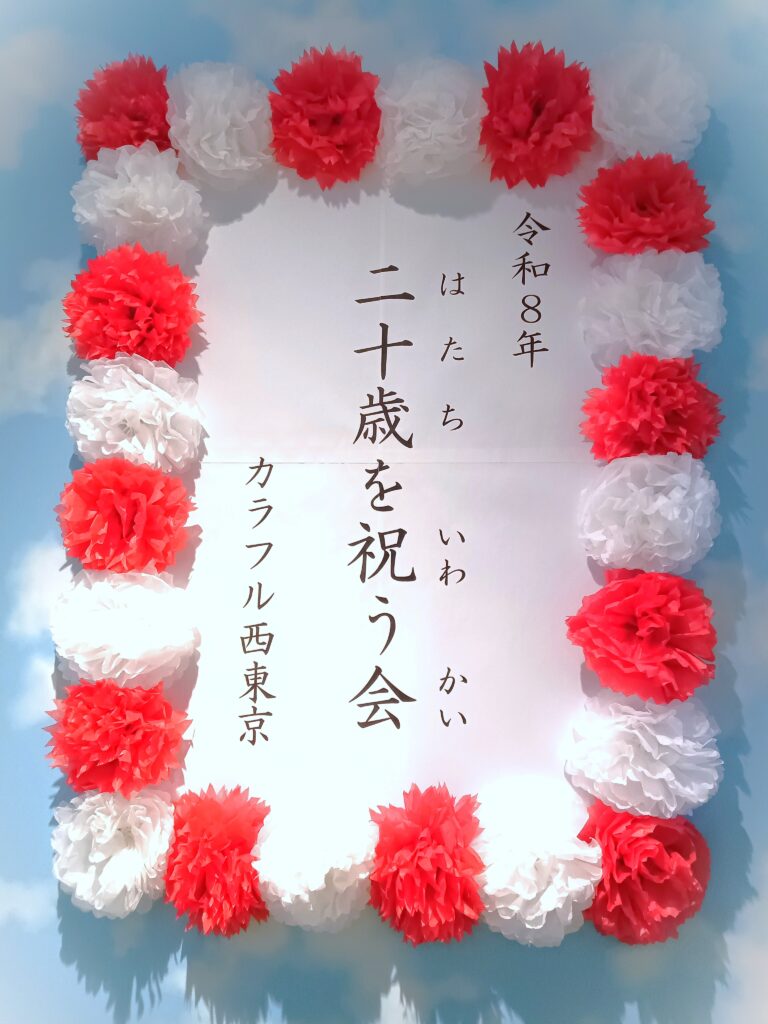 令和８年
はたち いわ かい
二十歳を祝う会
カラフル西東京